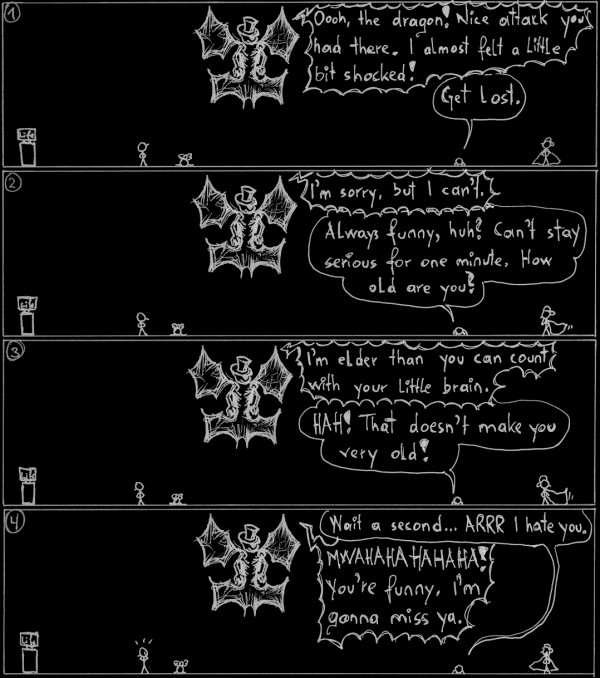 1
Oooh, the dragon! Nice attack you
had there. I almost felt a little
bit shocked!
Get lost.
Life
2
I'm sorry, but I can't.
Always funny, huh? Can't stay
serious for one minute. How
old are you?
Life
3
I'm elder than you can count
with your little brain.
HAH! That doesn't make you
very old!
Life
4
Wait a second... ARRR I hate you.
MWAHAHAHAHAHA!
You're funny, I'm
gonna miss ya.
Life